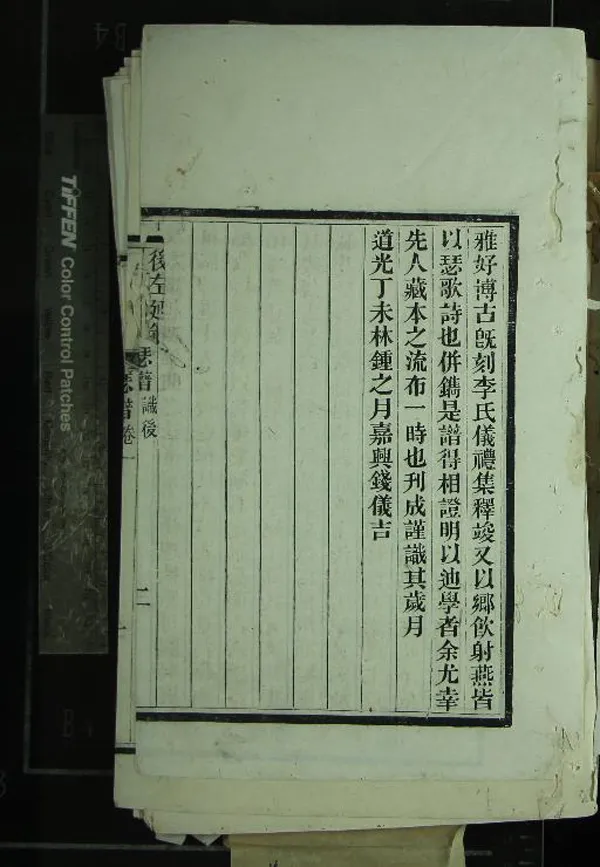 雅好博古旣刻李氏儀禮集釋竣又以鄉飲射燕皆
以瑟歌詩也併鐫是譜得相證明以迪學者余尤幸
先人藏本之流布一時也刊成謹識其歲月
道光丁未林鍾之月嘉興錢儀吉
瑟譜識後
二
TIFFEN Color Control Patches
B4